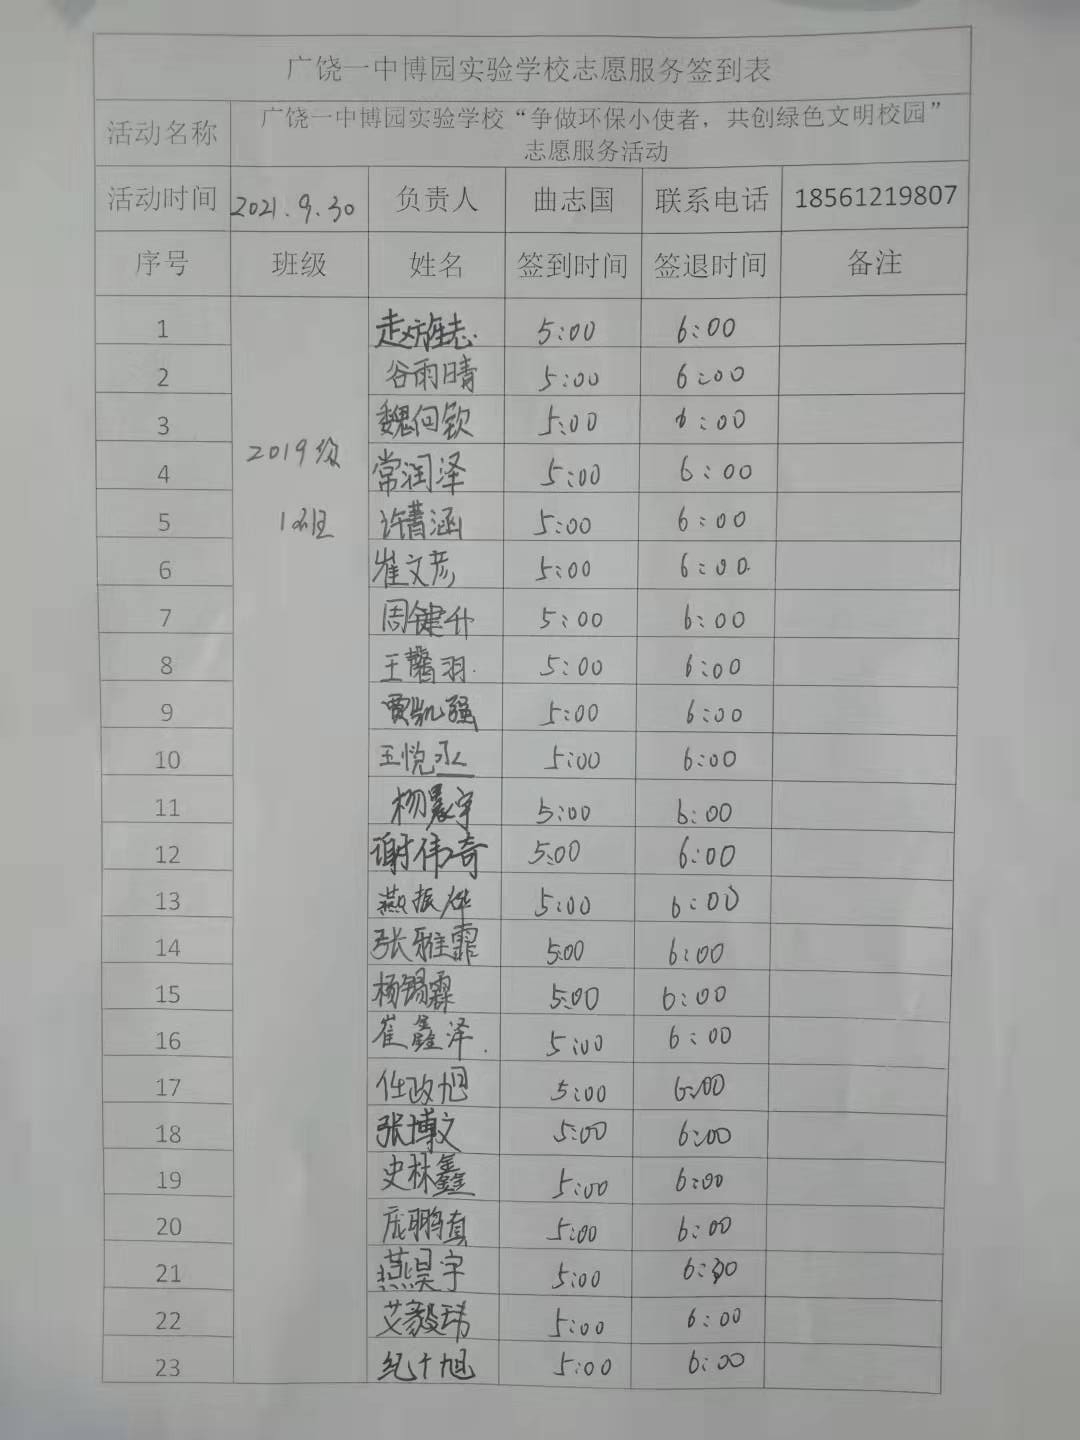 广饶一中博园实验学校志愿服务签到表
活动名称 广饶一中博园实验学校“争做环保小使者，共创绿色文明校园”
志愿服务活动
活动时间 2021.9.30 负责人 曲志国 联系电话 18561219807
序号 班级 姓名 签到时间 签退时间 备注
1 5:00 6:00
2 谷雨晴 5:00 6:00
3 魏何钦 5:00 6:00
2019级
4 常润泽 5:00 6:00
1班
5 许菁涵 5:00 6:00
6 崔文彦 5:00 6:00
7 周键升 5:00 6:00
8 王馨羽 5:00 6:00
9 贾凯强 5:00 6:00
10 王悦丞 5:00 6:00
11 杨晨宇 5:00 6:00
12 谢伟奇 5:00 6:00
13 燕振烨 5:00 6:00
14 张雅霏 5:00 6:00
15 杨锡霖 5:00 6:00
16 崔鑫泽 5:00 6:00
17 任政旭 5:00 6:00
18 张博文 5:00 6:00
19 史林鑫 5:00 6:00
20 庞鹏真 5:00 6:00
21 燕昊宇 5:00
22 艾毅玮 5:00 6:00
23 纪十旭 5:00 6:00